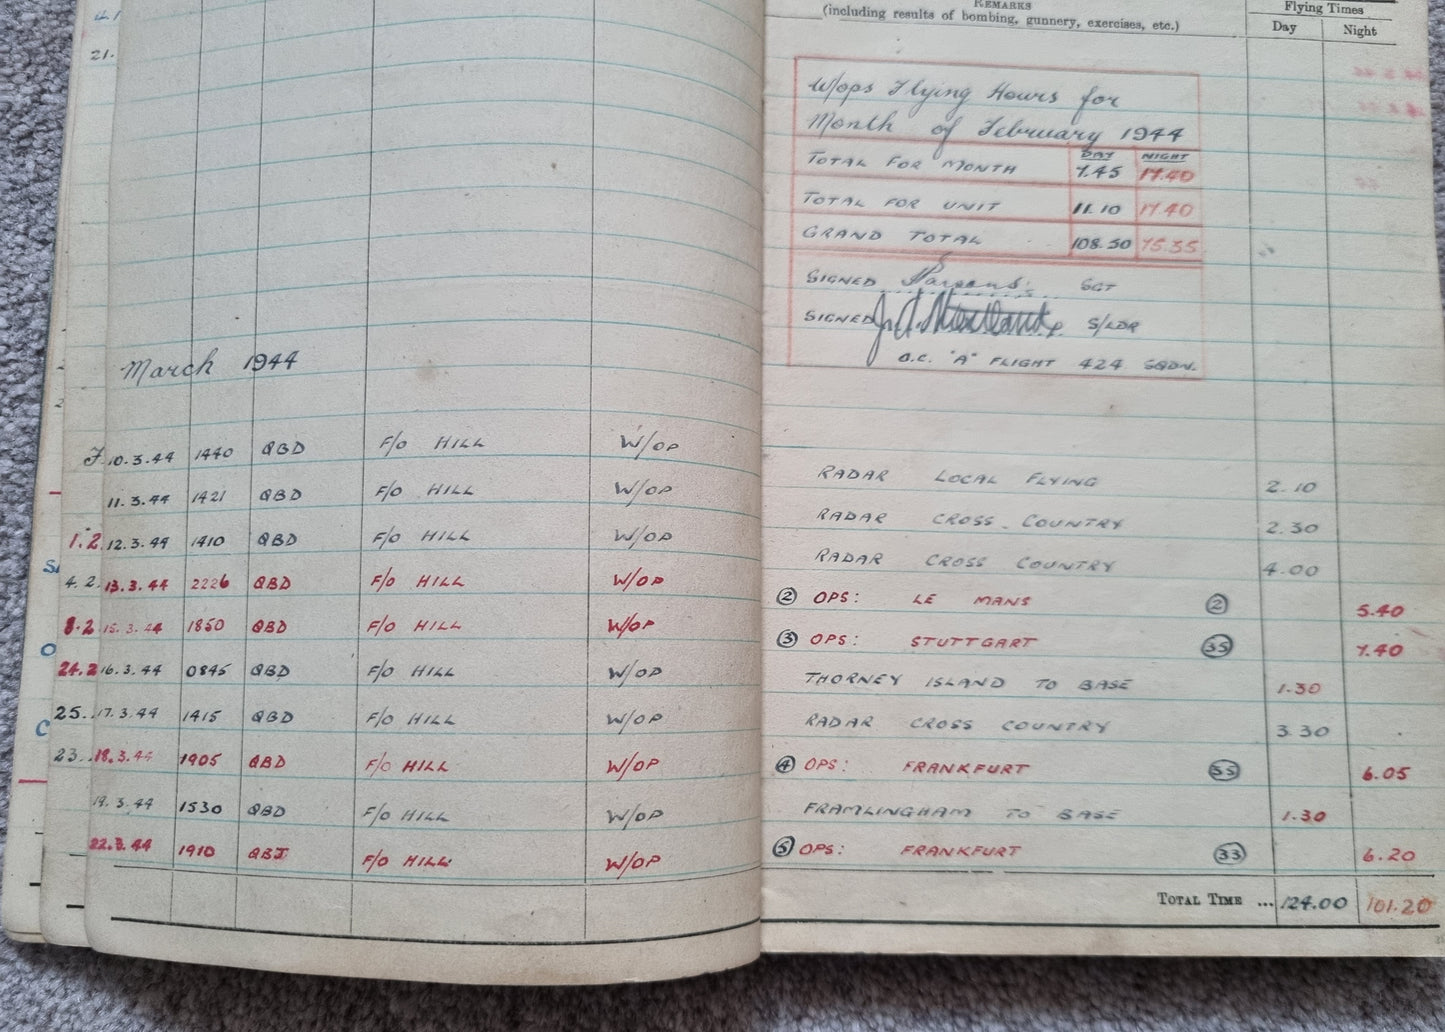 REMARKS
(including results of bombing, gunnery, exercises, etc.)
Flying Times
Day Night
21.
W/ops Flying Hours for
Month of February 1944
DAY NIGHT
TOTAL FOR MONTH 7.45 17.40
TOTAL FOR UNIT 11.10 17.40
GRAND TOTAL 108.50 75.35
SIGNED Parsons. SGT
SIGNED S/LDR
O.C. "A" FLIGHT 424 SQDN.
March 1944
10.3.44 1440 QBD F/O HILL W/OP RADAR LOCAL FLYING 2.10
11.3.44 1421 QBD F/O HILL W/OP RADAR CROSS COUNTRY 2.30
1.2. 12.3.44 1410 QBD F/O HILL W/OP RADAR CROSS COUNTRY 4.00
4.2. 13.3.44 2226 QBD F/O HILL W/OP ② OPS: LE MANS ② 5.40
8.2 15.3.44 1850 QBD F/O HILL W/OP ③ OPS: STUTTGART 35 7.40
24.2 16.3.44 0845 QBD F/O HILL W/OP THORNEY ISLAND TO BASE 1.30
25. 17.3.44 1415 QBD F/O HILL W/OP RADAR CROSS COUNTRY 3.30
23. 18.3.44 1905 QBD F/O HILL W/OP ④ OPS: FRANKFURT 35 6.05
19.3.44 1530 QBD F/O HILL W/OP FRAMLINGHAM TO BASE 1.30
22.3.44 1910 F/O HILL W/OP ⑤ OPS: FRANKFURT 33 6.20
TOTAL TIME ... 124.00 101.20